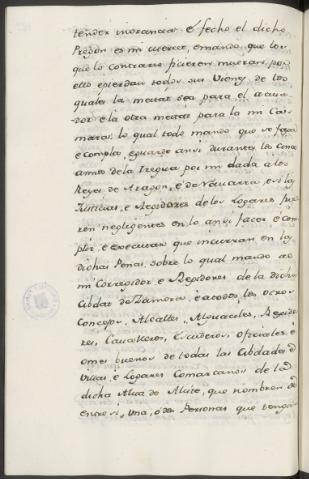 tender inorancia: é fecho el dicho
Pregon es mi merced, é mando, que los
que lo contrario ficieren mueran por
ello é pierdan todos sus Vienes de los
quales la meitat sea para el acusa-
dor é la otra meitat para la mi Ca-
mara: lo qual todo mando que se faga
é compla, é guarde ansi durante los
años de la Tregua por mi dada a los
Reyes de Aragon, é de Navarra, é si las
Justicias, é Regidores de los Logares fue-
ren negligentes en lo ansi facer é com-
plir, é executar que incurran en las
dichas Penas, sobre lo qual mando al
mi Corregidor é Regidores de la dicha
Cibdat de Zamora é a todos los otros
Concejos, Alcaldes, Alguaciles, Regido-
res, Cavalleros, Escuderos, oficiales é
omes buenos de todas las Cibdades é
Villas, é Logares Comarcanos de la
dicha de que nombren
entre si, una, o dos Personas que tengan